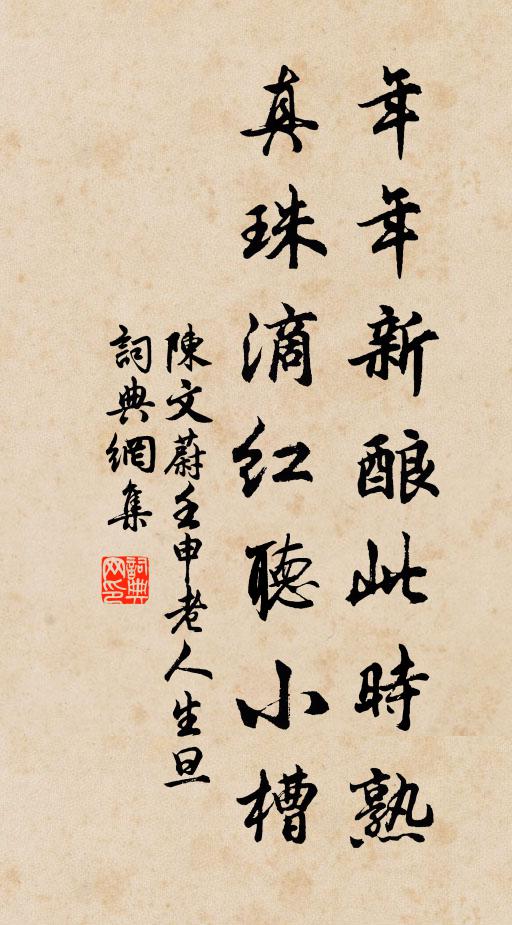 年年新酿此時熟
真珠滴紅聽小槽
陳文蔚壬申老人生旦
詞典網集
詞典網印